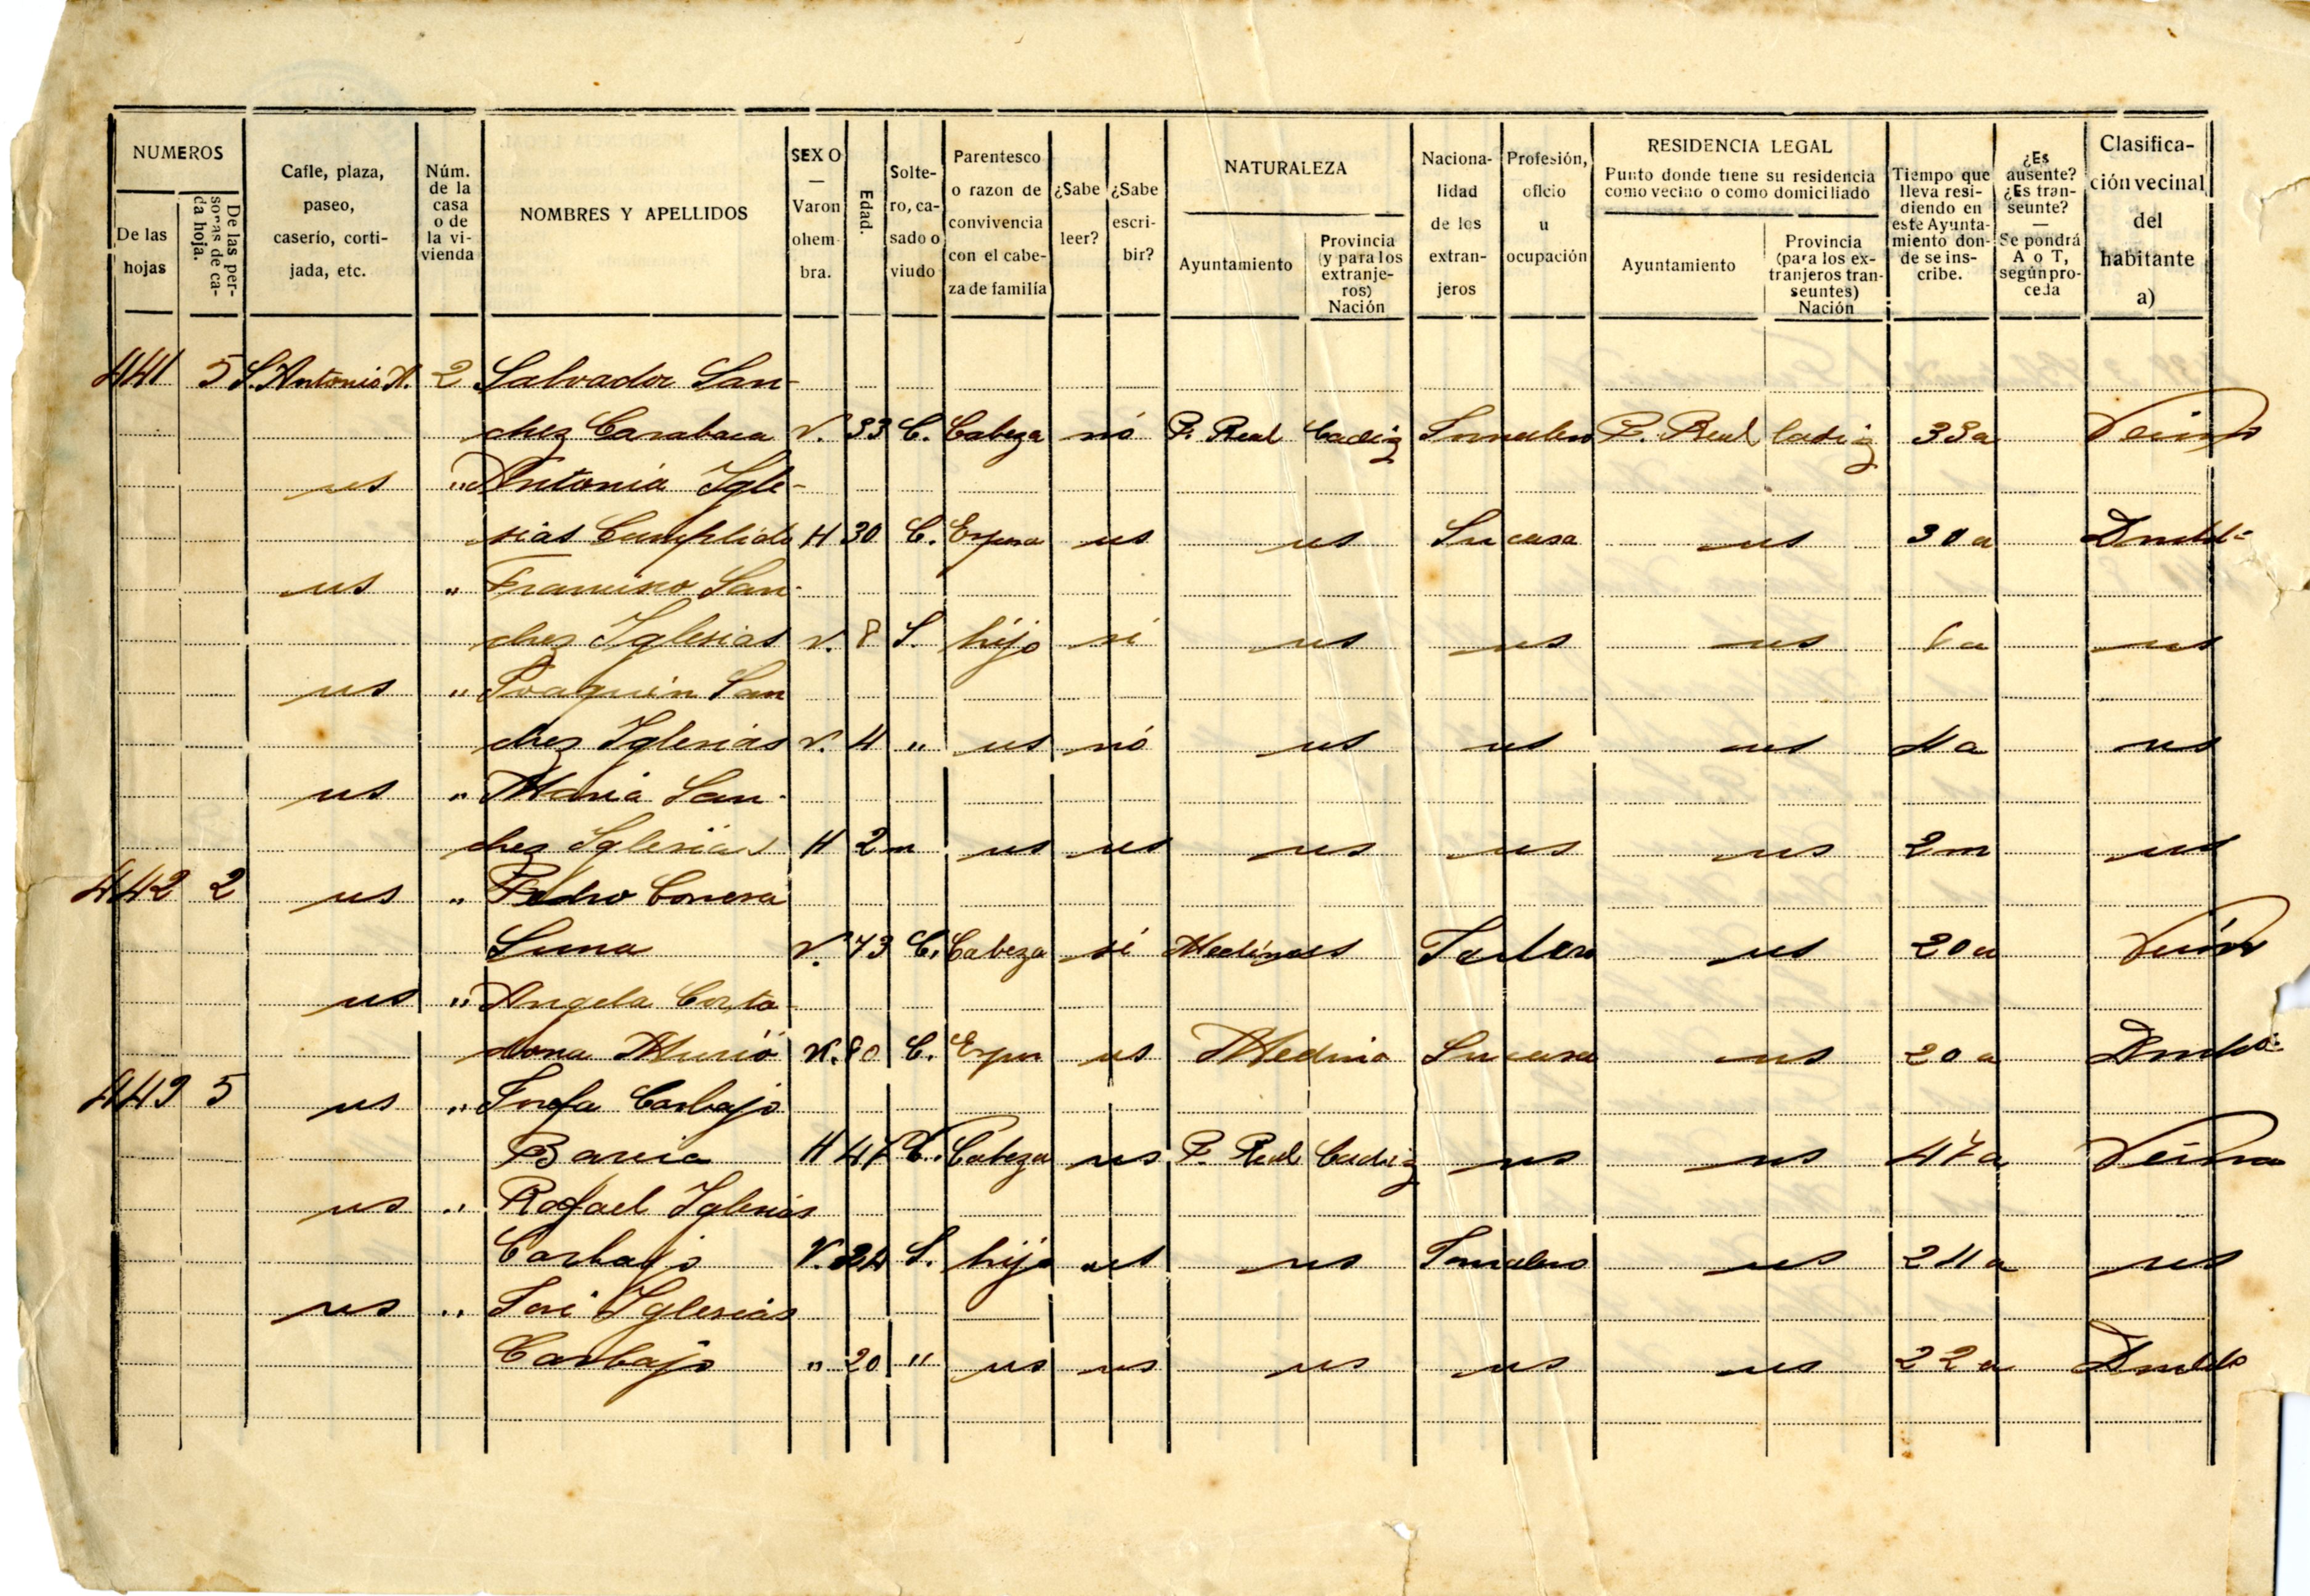 NUMEROS
De las hojas
De las personas de cada hoja.
Calle, plaza, paseo, caserío, cortijada, etc.
Núm. de la casa o de la vivienda
NOMBRES Y APELLIDOS
SEXO — Varon o hembra.
Edad.
Soltero, casado o viudo
Parentesco o razon de convivencia con el cabeza de familia
¿Sabe leer?
¿Sabe escribir?
NATURALEZA
Ayuntamiento
Provincia (y para los extranjeros) Nación
Nacionalidad de los extranjeros
Profesión, oficio u ocupación
RESIDENCIA LEGAL
Punto donde tiene su residencia como vecino o como domiciliado
Ayuntamiento
Provincia (para los extranjeros transeuntes) Nación
Tiempo que lleva residiendo en este Ayuntamiento donde se inscribe.
¿Es ausente? ¿Es transeunte? — Se pondrá A o T, según proceda
Clasificación vecinal del habitante a)
441 5 S. Antonio A. 2 Salvador San-
chez Carabaca V. 33 C. Cabeza nó P. Real Cadiz Jornalero P. Real Cadiz 33a Vecino
us " Antonia Igle-
sias Cumplido H 30 C. Esposa us us Su casa us 30a
us " Francisco San-
chez Iglesias V. 8 S. hijo si us us us us
us " Joaquin San
chez Iglesias V. 4 " us nó us us us 4a us
us " Maria San-
chez Iglesias H 2m us us us us us 2m us
442 2 us " Pedro Correra
Luna V. 73 C. Cabeza si Medina us us 20a Vecino
us " Angela Carta-
dona H. 80 C. Espo us Medina Su casa us 20a
443 5 us " Josefa Carbajo
Barcia H 47 Cabeza us P. Real Cadiz us us 47a Vecina
us " Rafael Iglesias
Carbajo V. 24 S. hijo us us Jornalero us 24a us
us " José Iglesias
Carbajo " 20 " us us us us us 22a